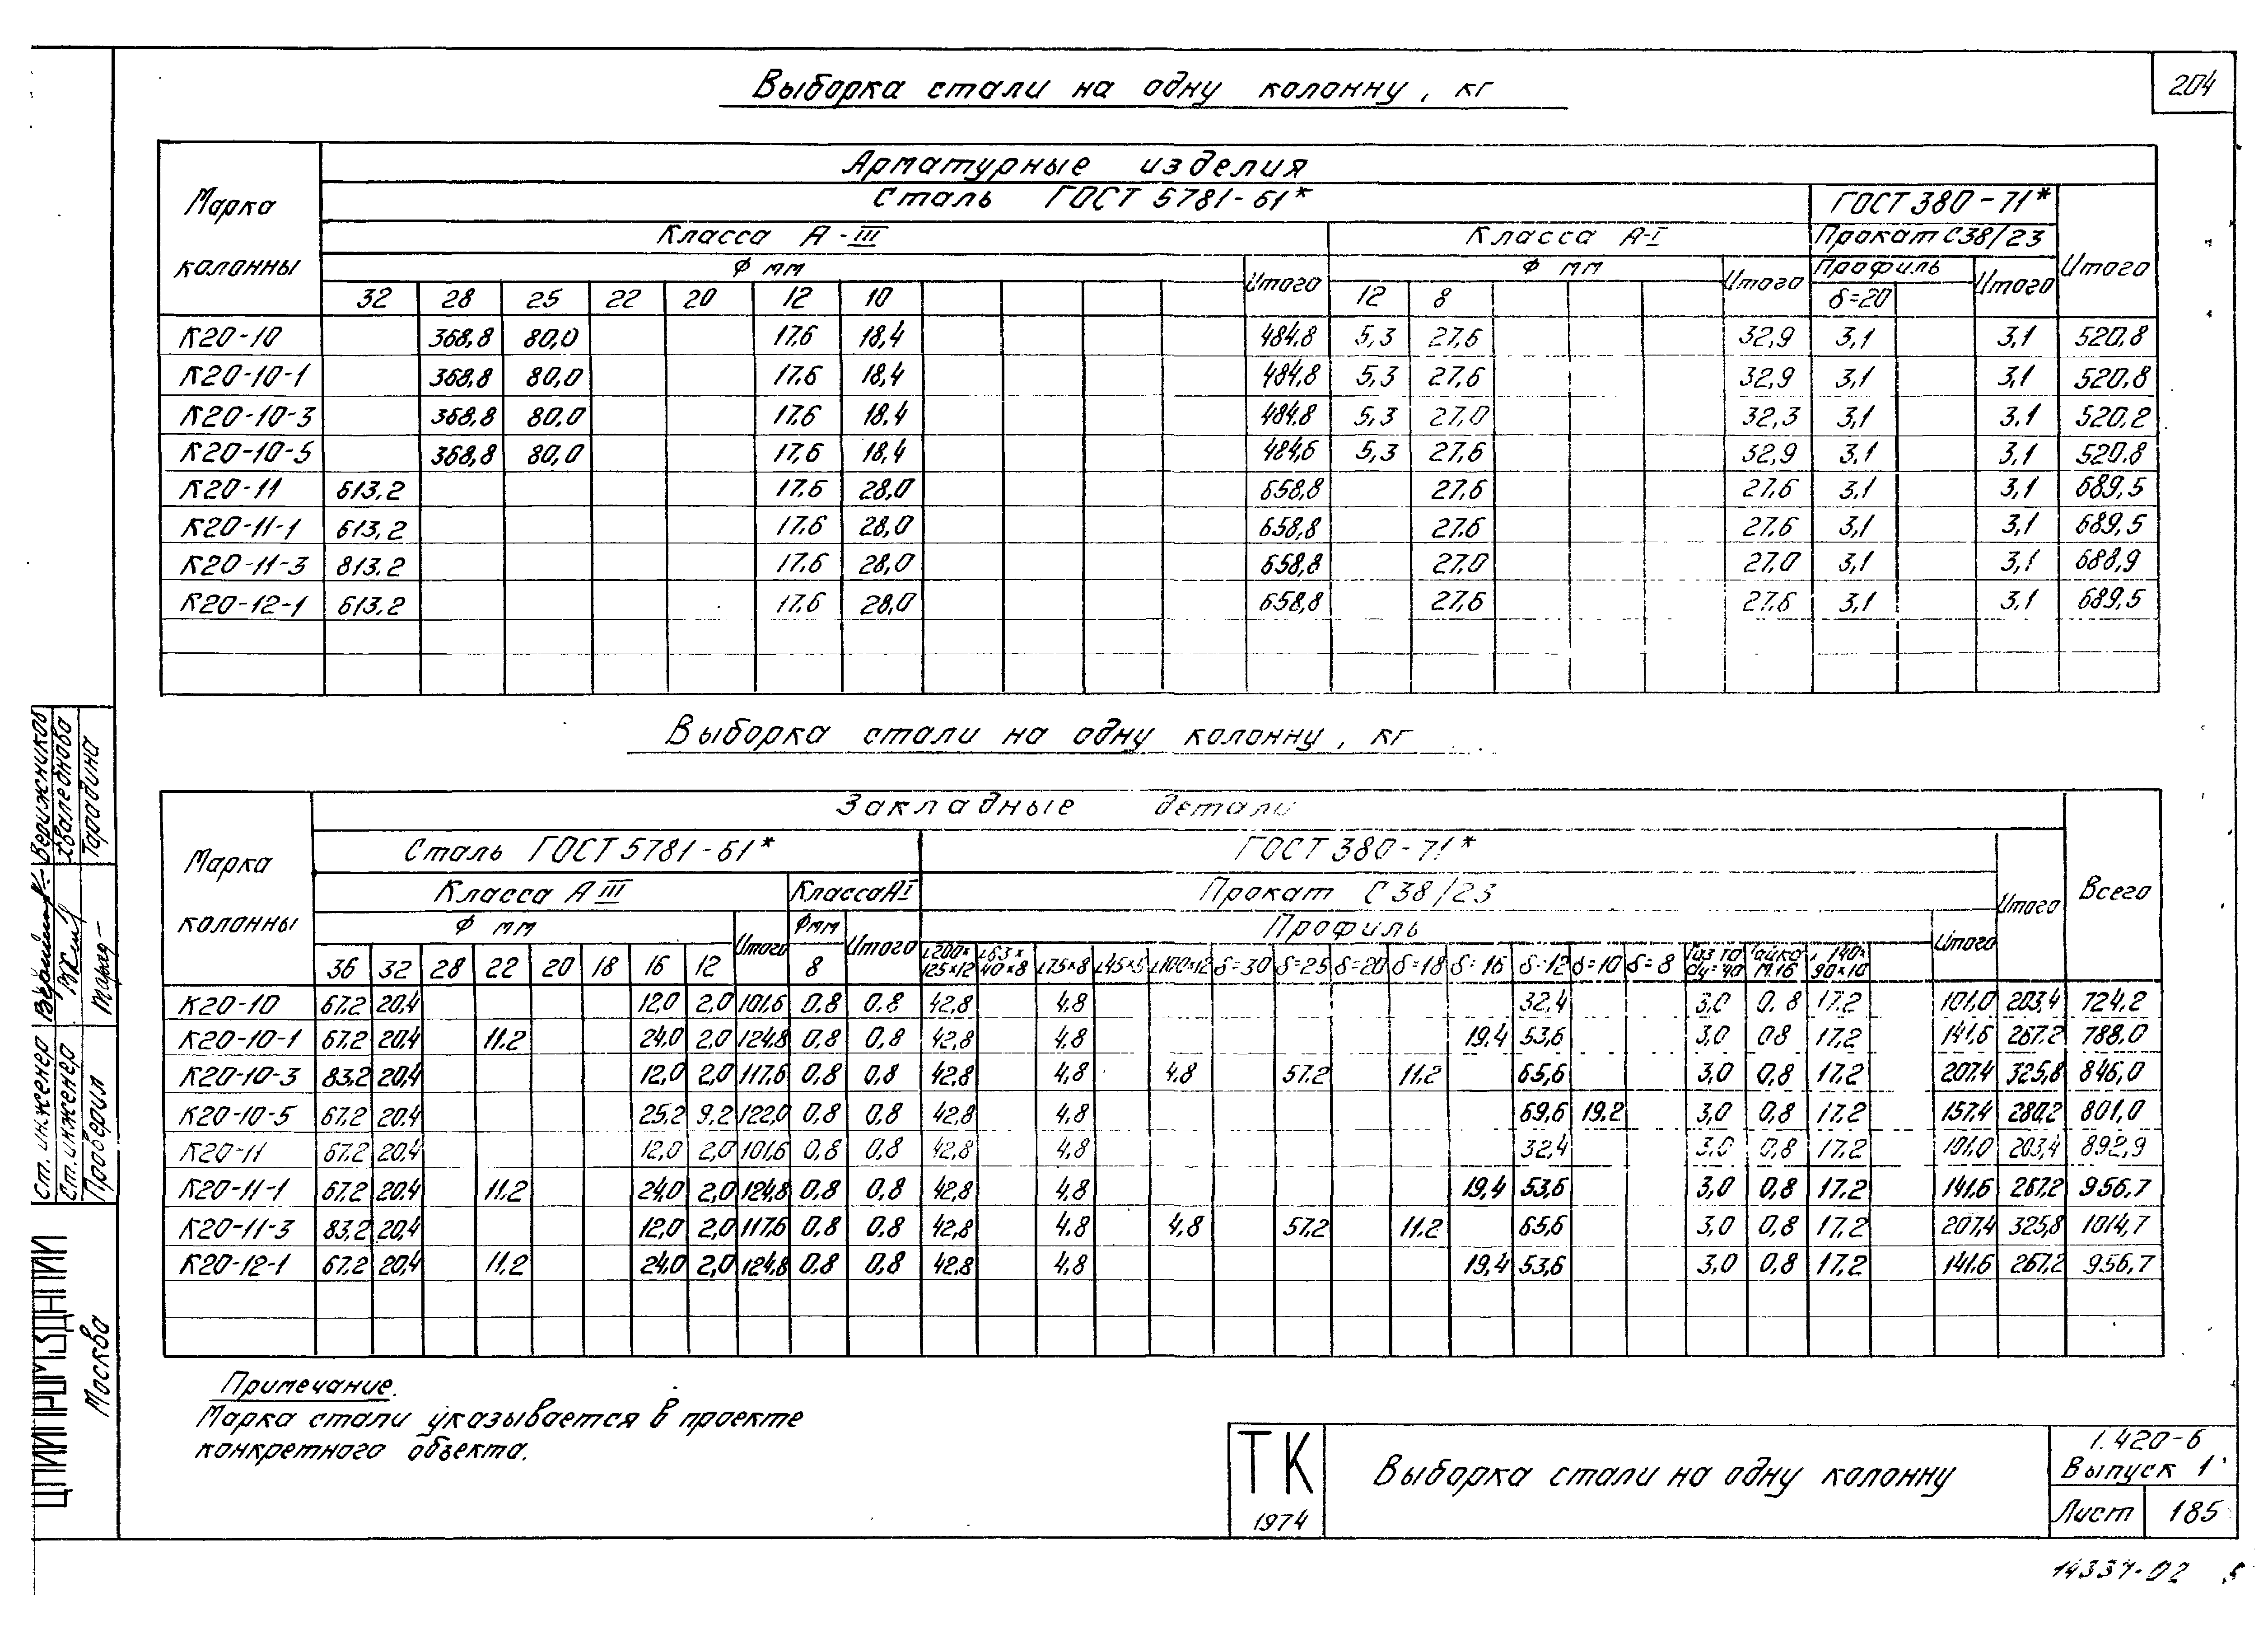 204
Выборка стали на одну колонну, кг
Марка колонны
Арматурные изделия
Сталь ГОСТ 5781-61*
ГОСТ 380-71*
Итого
Класса А-III
Класса А-I
Прокат С38/23
Ф мм
Итого
Ф мм
Итого
Профиль
Итого
32 28 25 22 20 12 10
12 8
δ=20
К20-10 368,8 80,0 17.6 18,4 484,8 5,3 27,6 32,9 3,1 3,1 520,8
К20-10-1 368,8 80,0 17.6 18,4 484,8 5,3 27,6 32,9 3,1 3,1 520,8
К20-10-3 368,8 80,0 17.6 18.4 484.8 5,3 27,0 32,3 3,1 3,1 520,2
К20-10-5 368,8 80,0 17,6 18,4 484,6 5,3 27.6 32,9 3,1 3,1 520.8
К20-11 613,2 17.6 28,0 658,8 27,6 27,6 3,1 3,1 689,5
К20-11-1 613,2 17.6 28,0 658,8 27.6 27.6 3,1 3,1 689,5
К20-11-3 813.2 17.6 28,0 658,8 27,0 27,0 3,1 3,1 688,9
К20-12-1 613.2 17.6 28,0 658,8 27,6 27,6 3,1 3,1 689,5
Выборка стали на одну колонну, кг
Марка колонны
Закладные детали
Всего
Сталь ГОСТ 5781-61*
ГОСТ 380-71*
Итого
Класса А III
Класса АI
Прокат С 38/23
Ф мм
Итого
Фмм
Итого
Профиль
Итого
36 32 28 22 20 18 16 12
8
L200×125×12 L63×40×8 L75×8 L45×5 L100×12 δ=30 δ=25 δ=20 δ=18 δ=16 δ=12 δ=10 δ=8 Гайка М.16 140×90×10
К20-10 67.2 20.4 12.0 2,0 101,6 0.8 0.8 42,8 4,8 32,4 3,0 0,8 17.2 101,0 203,4 724,2
К20-10-1 67.2 20.4 11.2 24,0 2,0 124,8 0,8 0,8 42,8 4,8 19.4 53,6 3,0 0,8 17.2 141,6 267.2 788,0
К20-10-3 83,2 20,4 12,0 2,0 117,6 0,8 0,8 42,8 4,8 4,8 57.2 11.2 65,6 3,0 0,8 17.2 207.4 325,8 846,0
К20-10-5 67.2 20.4 25,2 9,2 122,0 0,8 0,8 42,8 4,8 69,6 19.2 3,0 0,8 17.2 157.4 280,2 801,0
К20-11 67.2 20.4 12,0 2,0 101,6 0,8 0,8 42,8 4,8 32,4 3,0 0,8 17.2 101,0 203,4 892,9
К20-11-1 67.2 20.4 11.2 24,0 2,0 124,8 0,8 0,8 42,8 4,8 19,4 53,6 3,0 0,8 17.2 141,6 267.2 956,7
К20-11-3 83,2 20,4 12,0 2,0 117,6 0,8 0,8 42,8 4,8 4,8 57.2 11.2 65,6 3,0 0,8 17.2 207,4 325,8 1014,7
К20-12-1 67.2 20,4 11.2 24,0 2,0 124,8 0,8 0,8 42,8 4,8 19,4 53,6 3,0 0,8 17,2 141,6 267,2 956,7
Примечание.
Марка стали указывается в проекте
конкретного объекта.
ТК
1974
Выборка стали на одну колонну
1.420-6
Выпуск 1
Лист 185
Ст. инженер Верижников
Ст. инженер
Проверил Тарадина
ЦНИИПРОМЗДАНИЙ
Москва